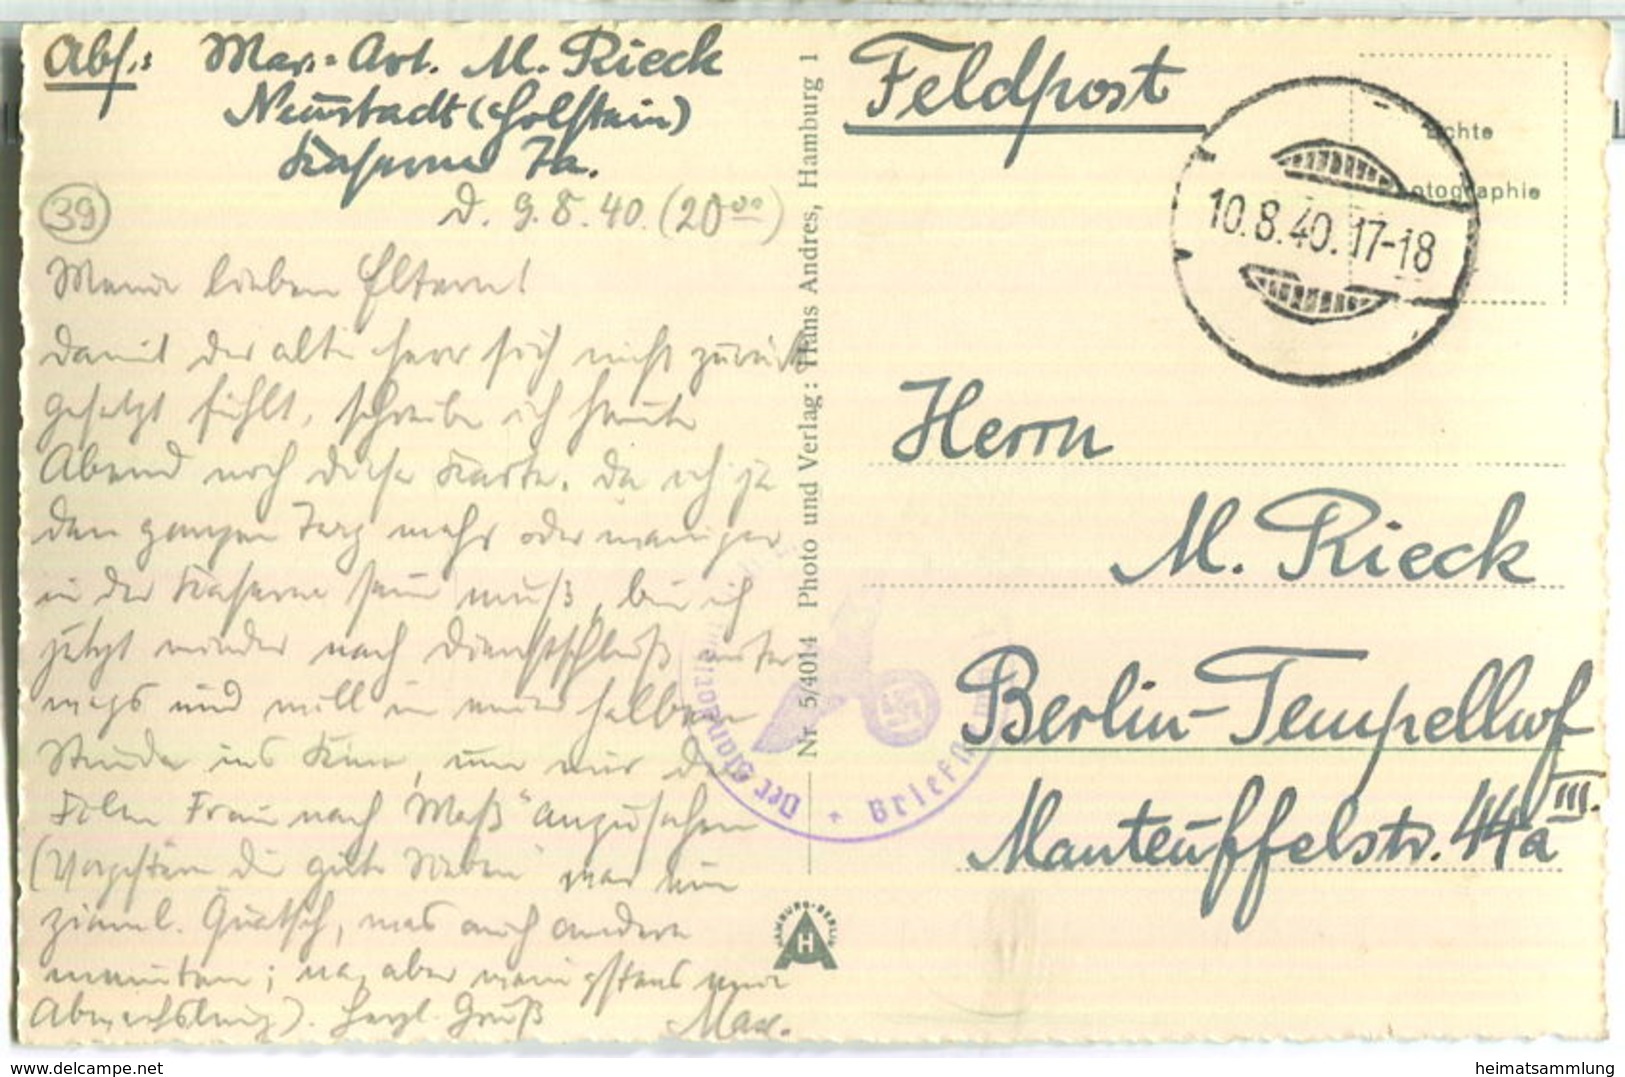 Abs.: Mar.-Art. M. Rieck
Neustadt (Holstein)
Kaserne Ia.
39
d. 9.8.40. (20⁰⁰)
Meine lieben Eltern!
Damit der alte Herr sich nicht zurück
gesetzt fühlt, schreibe ich heute
Abend noch diese Karte. Da ich ja
den ganzen Tag mehr oder weniger
in der Kaserne sein muß, bin ich
jetzt wieder nach Dienstschluß unter
wegs und will in einer halben
Stunde ins Kino, um mir den
Film "Frau nach Maß" anzusehen
(Vorgestern "Die gute Sieben" war ein
zieml. Quatsch, was auch andere
meinten; na, aber wenigstens eine
Abwechslung). Herzl. Gruß Max.
Nr. 5/4014 Photo und Verlag: Hans Andres, Hamburg 1
HAMBURG-BERLIN
H
Feldpost
Echte
Photographie
10.8.40.17-18
Der Standortältest
Briefst
Herrn
M. Rieck
Berlin-Tempelhof
Manteuffelstr. 44a III.
delcampe.net
heimatsammlung